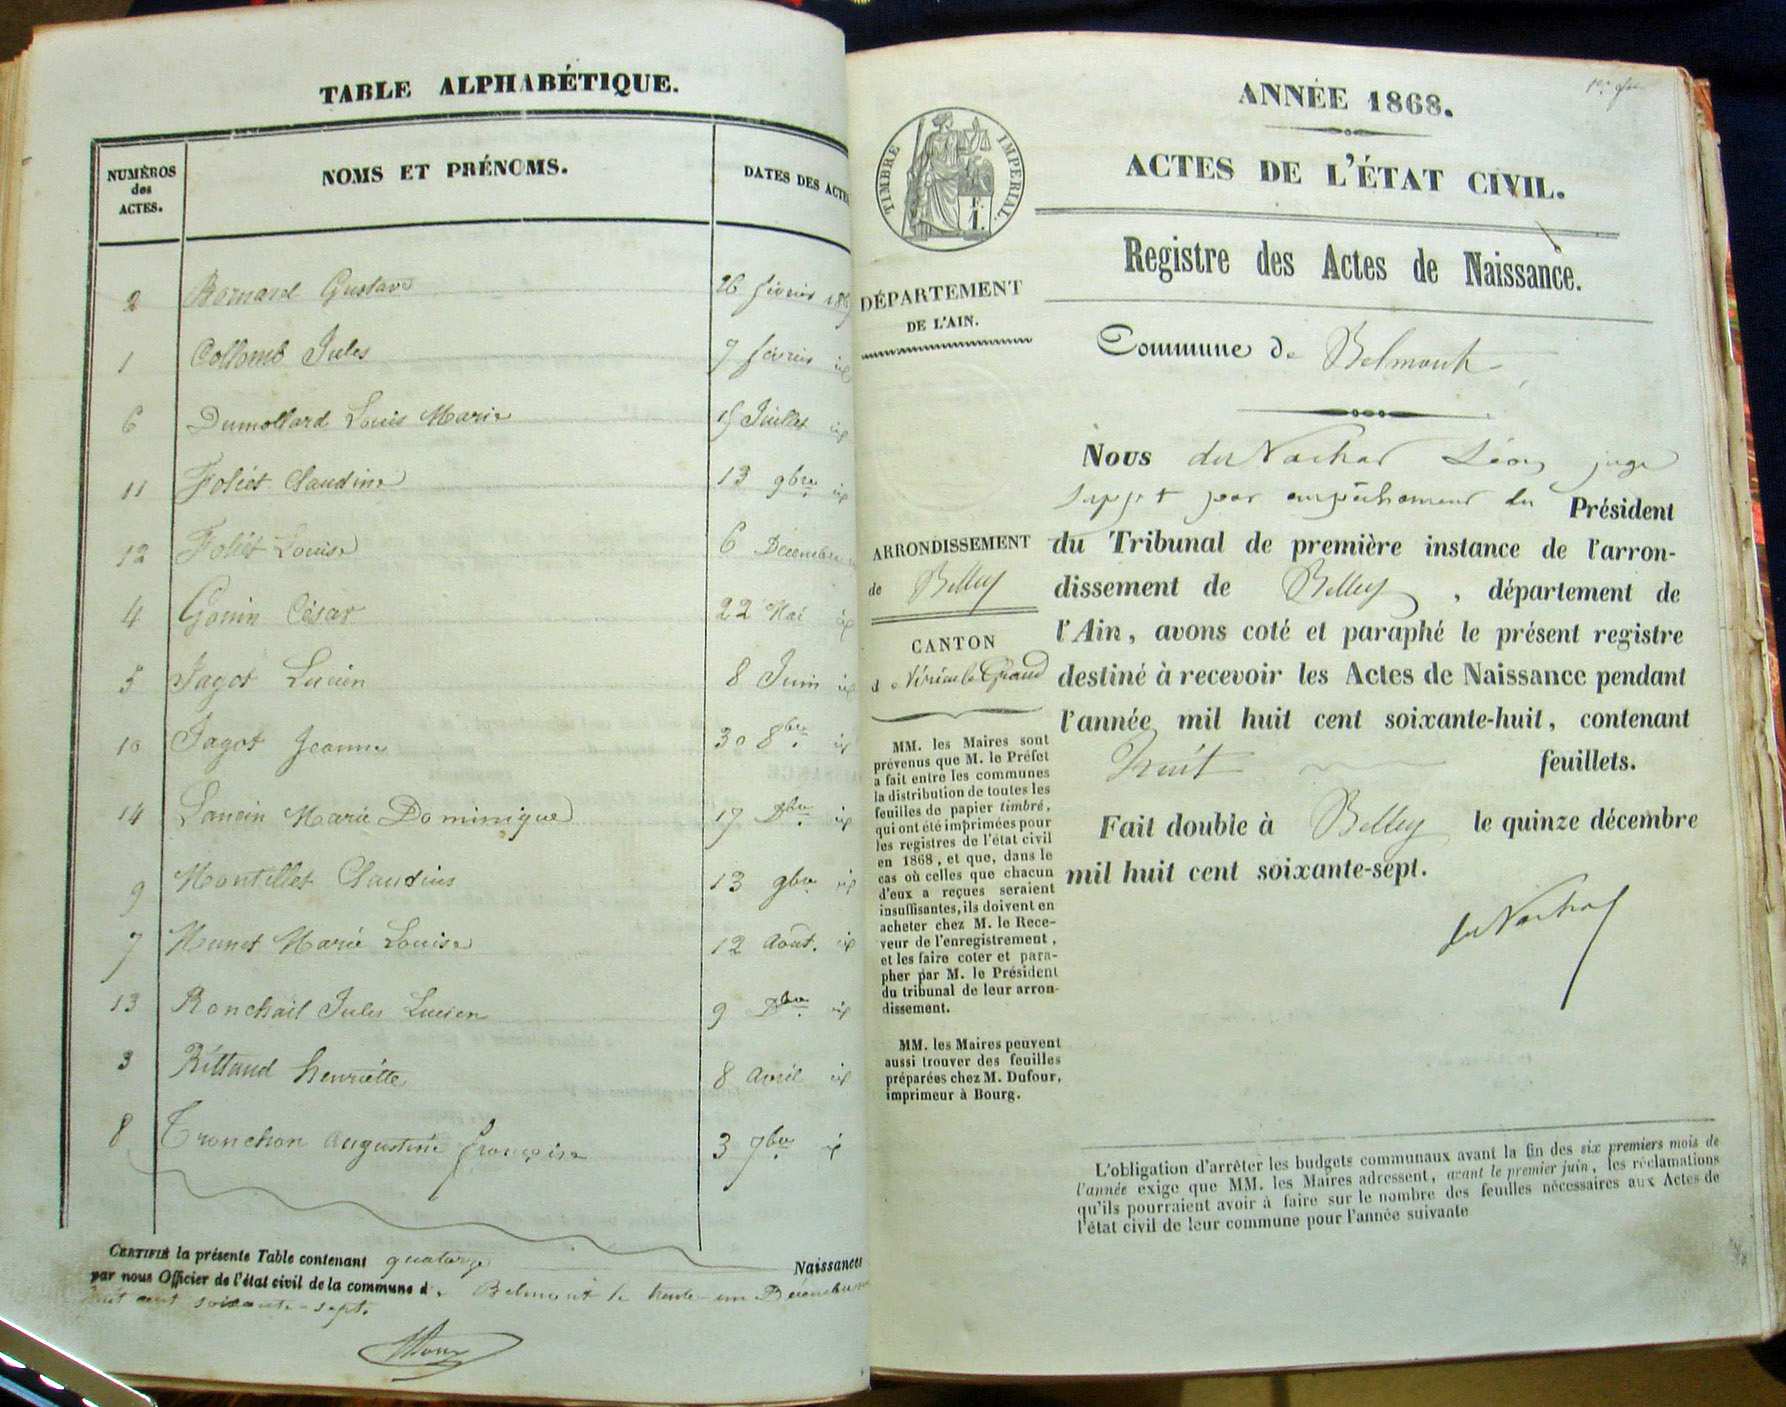 TABLE ALPHABÉTIQUE.
NUMÉROS
des
ACTES.
NOMS ET PRÉNOMS.
DATES DES ACTE
2 Bernard Gustave 26 février 1867
1 Collomb Jules 7 février id
6 Dumollard Louis Marie 15 Juillet id
11 Foliet Claudine 13 9bre id
12 Foliet Louise 6 Décembre
4 Gouin César 22 Mai id
5 Jagot Lucien 8 Juin id
10 Jagot Jeanne 30 8bre id
14 Lancin Marie Dominique 17 Dbre id
9 Montillet Claudius 13 9bre id
7 Munet Marie Louise 12 Août id
13 Ronchail Jules Lucien 9 Dbre id
3 Rittaud henriette 8 avril id
8 Tronchon augustine françoise 3 7bre id
CERTIFIÉ la présente Table contenant quatorze Naissances
par nous Officier de l'état civil de la commune de Belmont le trente-un Décembre
huit cent soixante-sept.
ANNÉE 1868.
TIMBRE IMPERIAL
F.
1.
ACTES DE L'ÉTAT CIVIL.
Registre des Actes de Naissance.
DÉPARTEMENT
DE L'AIN.
Commune de Belmont
Nous du Nachat Léon juge
suppt par empêchement du Président
ARRONDISSEMENT
de Belley
CANTON
de Virieu le Grand
du Tribunal de première instance de l'arron-
dissement de Belley, département de
l'Ain, avons coté et paraphé le présent registre
destiné à recevoir les Actes de Naissance pendant
l'année mil huit cent soixante-huit, contenant
huit feuillets.
Fait double à Belley le quinze décembre
mil huit cent soixante-sept.
du Nachat
MM. les Maires sont
prévenus que M. le Préfet
a fait entre les communes
la distribution de toutes les
feuilles de papier timbré,
qui ont été imprimées pour
les registres de l'état civil
en 1868, et que, dans le
cas où celles que chacun
d'eux a reçues seraient
insuffisantes, ils doivent en
acheter chez M. le Rece-
veur de l'enregistrement,
et les faire coter et para-
pher par M. le Président
du tribunal de leur arron-
dissement.
MM. les Maires peuvent
aussi trouver des feuilles
préparées chez M. Dufour,
imprimeur à Bourg.
L'obligation d'arrêter les budgets communaux avant la fin des six premiers mois de
l'année exige que MM. les Maires adressent, avant le premier juin, les réclamations
qu'ils pourraient avoir à faire sur le nombre des feuilles nécessaires aux Actes de
l'état civil de leur commune pour l'année suivante